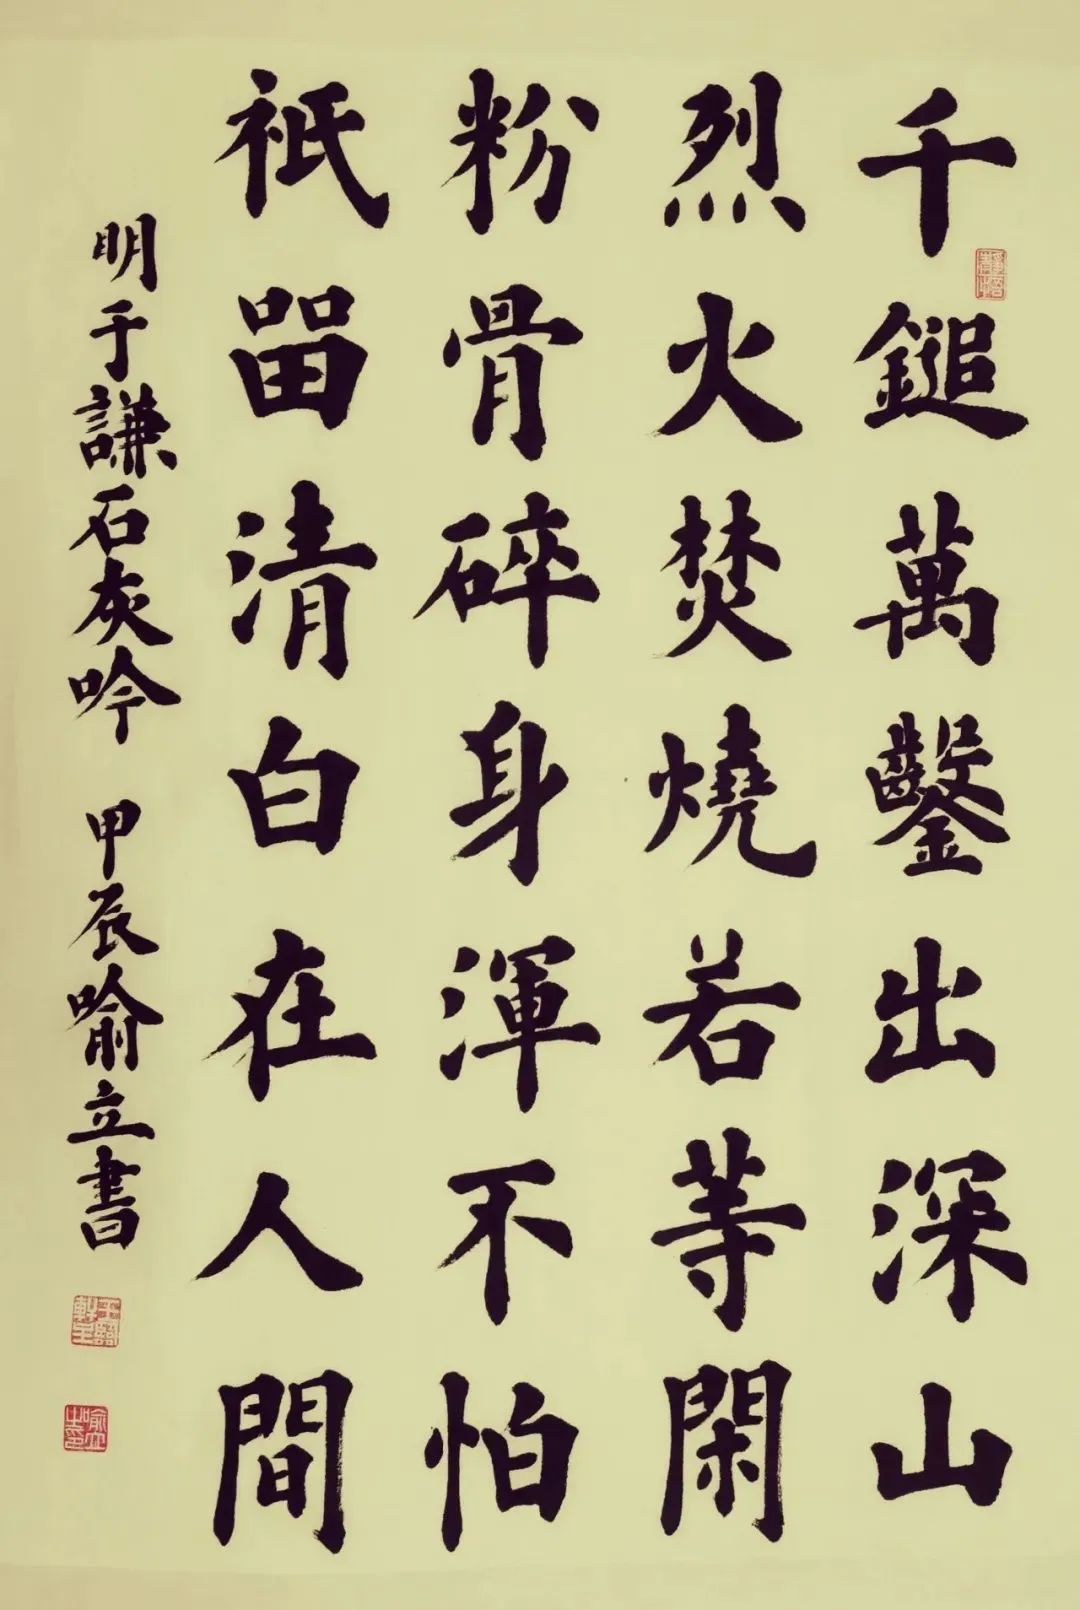 千鎚萬鑿出深山
烈火焚燒若等閑
粉骨碎身渾不怕
衹留清白在人間
明于謙石灰吟 甲辰喻立書